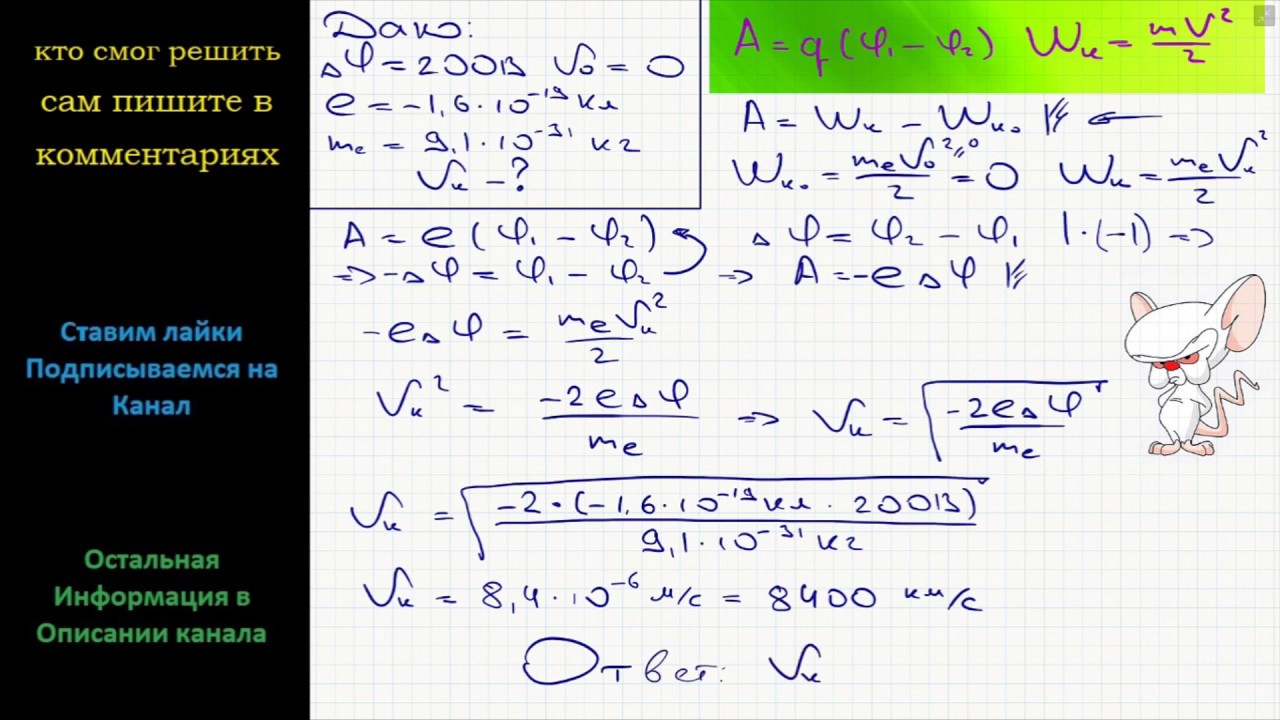 кто смог решить
сам пишите в
комментариях
Ставим лайки
Подписываемся на
Канал
Остальная
Информация в
Описании канала
Дано:
Δφ = 200В V₀ = 0
e = -1,6·10⁻¹⁹ Кл
mₑ = 9,1·10⁻³¹ кг
Vₖ - ?
A = q(φ₁ - φ₂) Wₖ = mV²/2
A = Wₖ - Wₖ₀ ←
Wₖ₀ = mₑV₀²/2 = 0 Wₖ = mₑVₖ²/2
A = e(φ₁ - φ₂) Δφ = φ₂ - φ₁ |·(-1) =>
=> -Δφ = φ₁ - φ₂ => A = -eΔφ
-eΔφ = mₑVₖ²/2
Vₖ² = -2eΔφ/mₑ => Vₖ = √(-2eΔφ/mₑ)
Vₖ = √(-2·(-1,6·10⁻¹⁹Кл · 200В)/9,1·10⁻³¹кг)
Vₖ = 8,4·10⁻⁶ м/с = 8400 км/с
Ответ: Vₖ